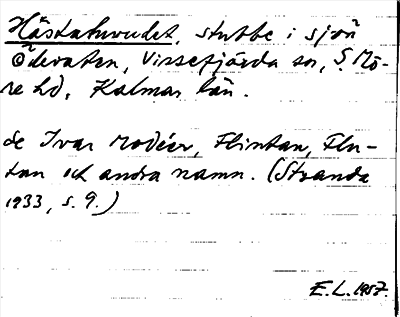 Hästahuvudet, stubbe i sjön
Ödevaten, Vissefjärda sn, S. Mö-
re hd, Kalmar län.
Se Ivar Modéer, Flintan, Flu-
tan och andra namn. (Stranda
1933, s. 9.)
E.L. 1957.